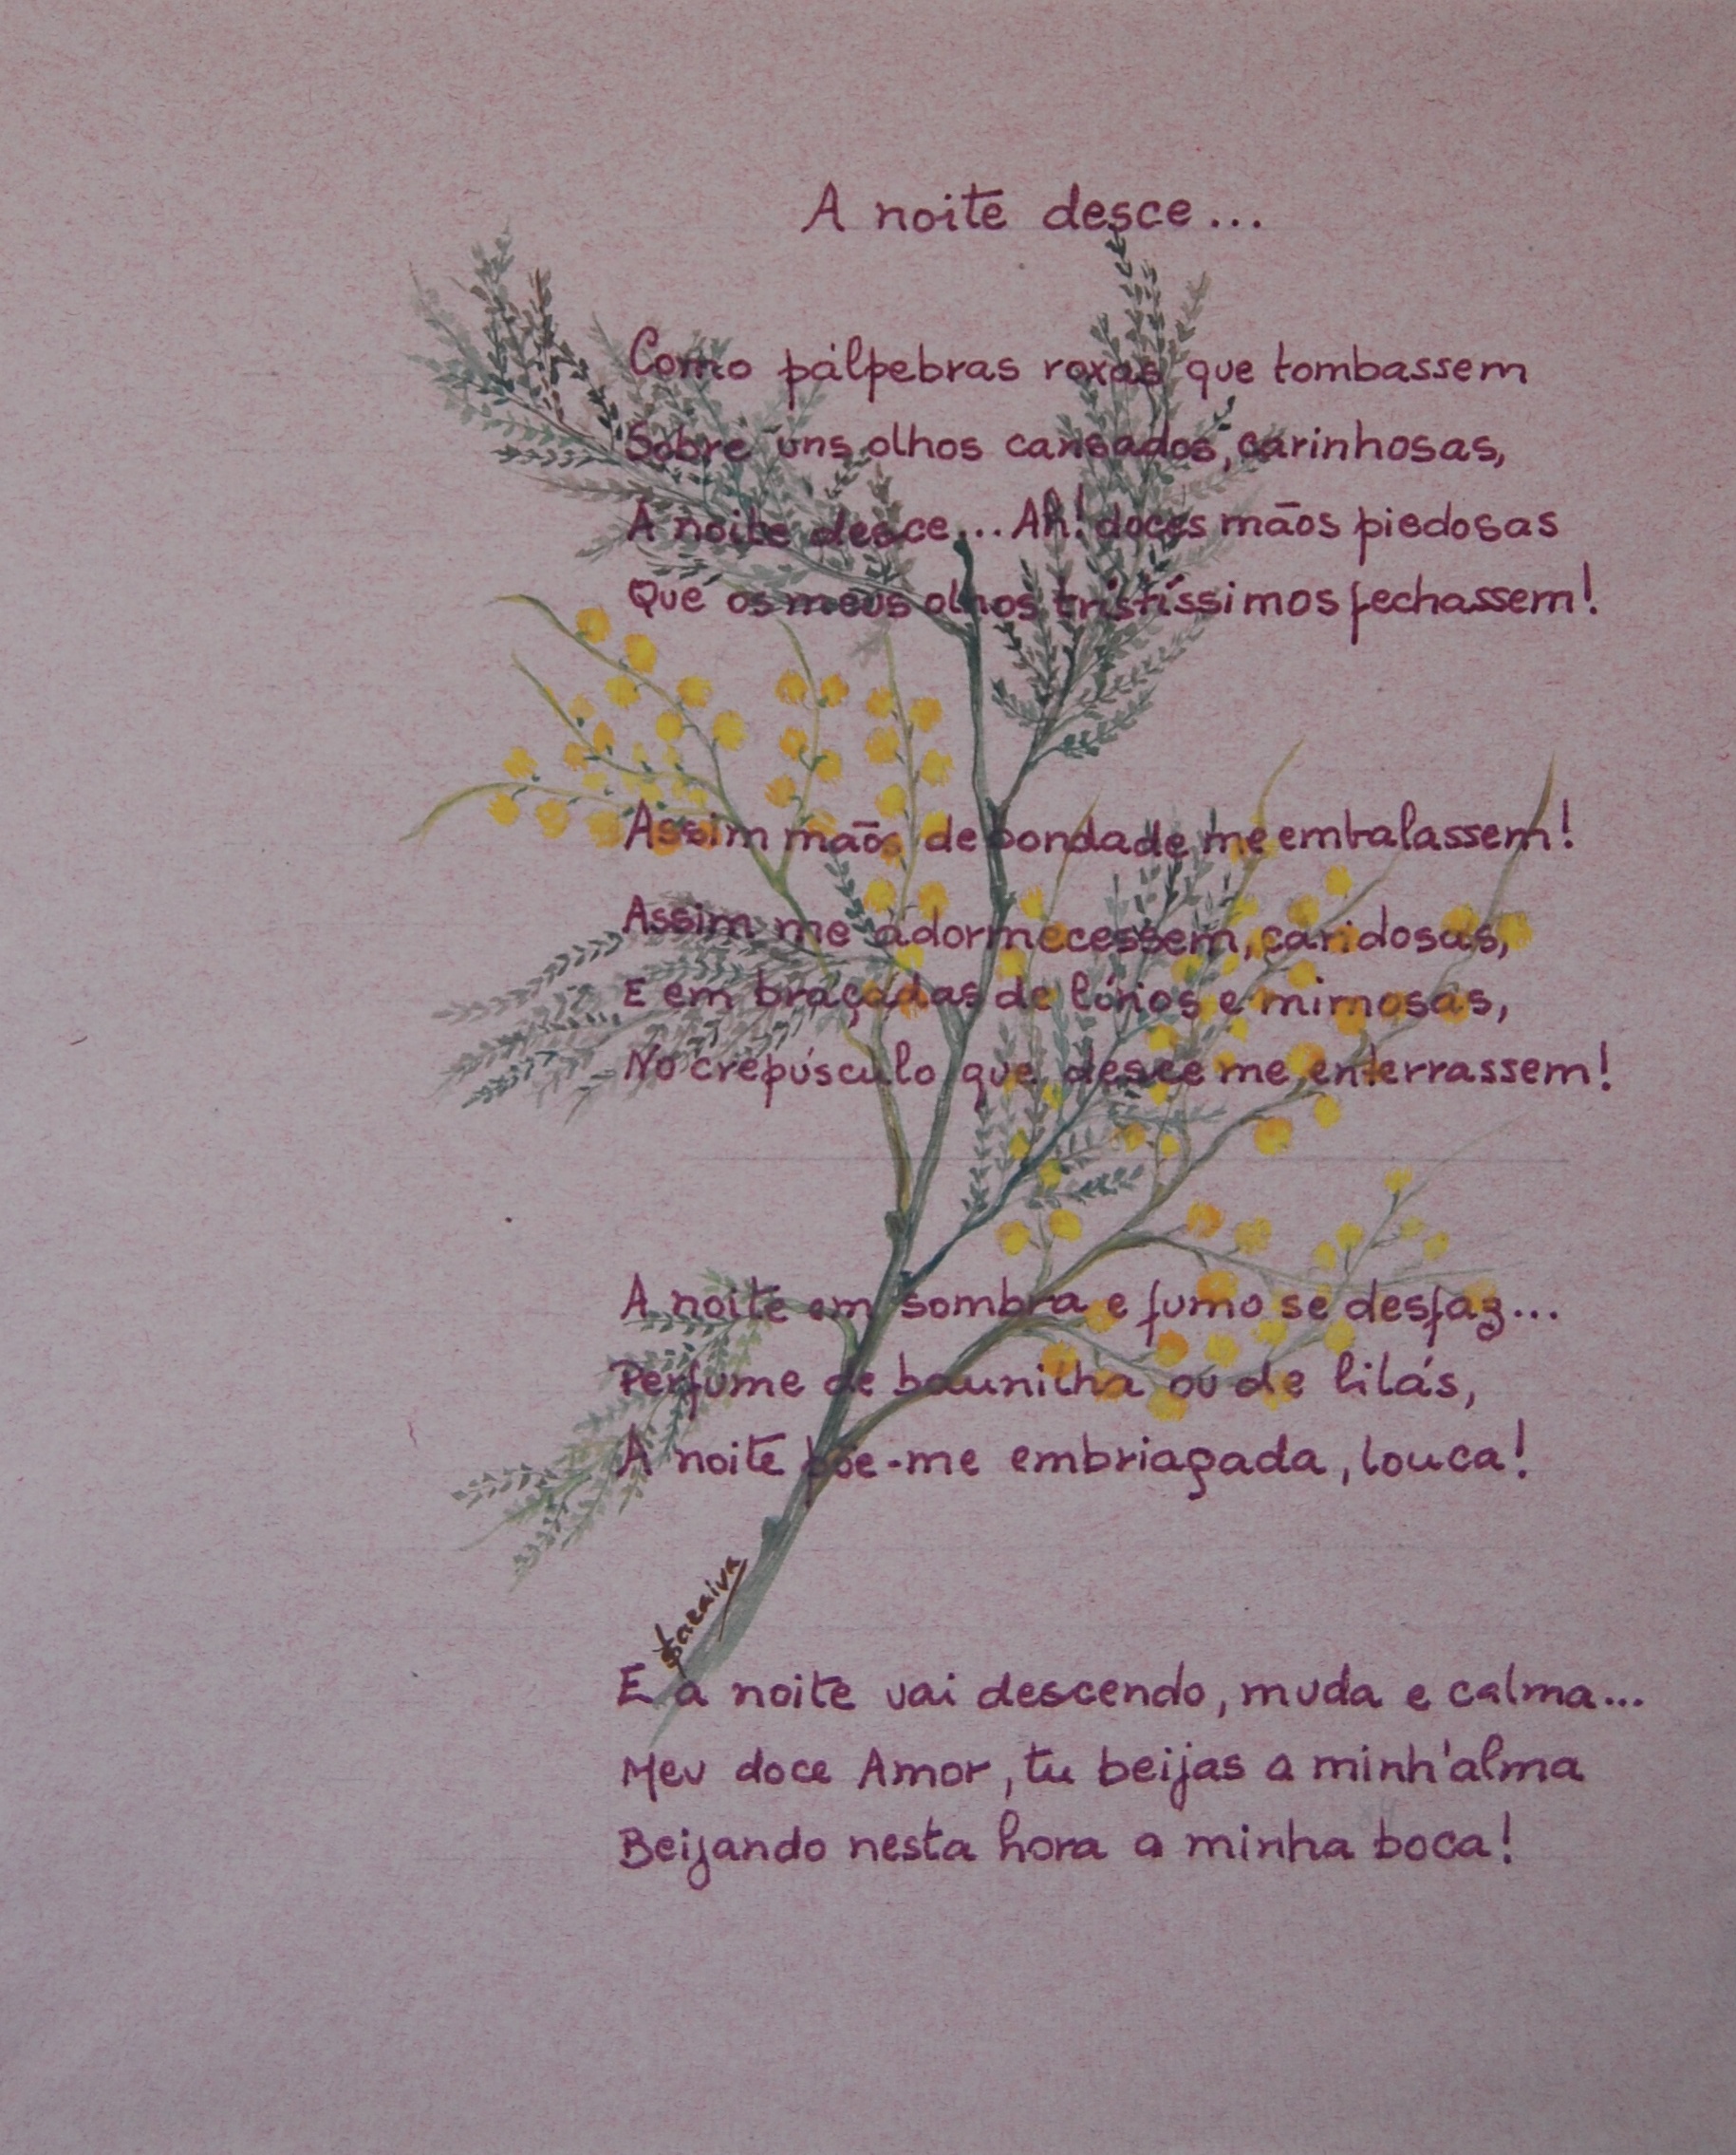 A noite desce...
Como pálpebras roxas que tombassem
Sobre uns olhos cansados, carinhosas,
A noite desce... Ah! doces mãos piedosas
Que os meus olhos tristíssimos fechassem!
Assim mãos de bondade me embalassem!
Assim me adormecessem, caridosas,
E em braçadas de lírios e mimosas,
No crepúsculo que desce me enterrassem!
A noite em sombra e fumo se desfaz...
Perfume de baunilha ou de lilás,
A noite põe-me embriagada, louca!
Saraiva
E a noite vai descendo, muda e calma...
Meu doce Amor, tu beijas a minh'alma
Beijando nesta hora a minha boca!